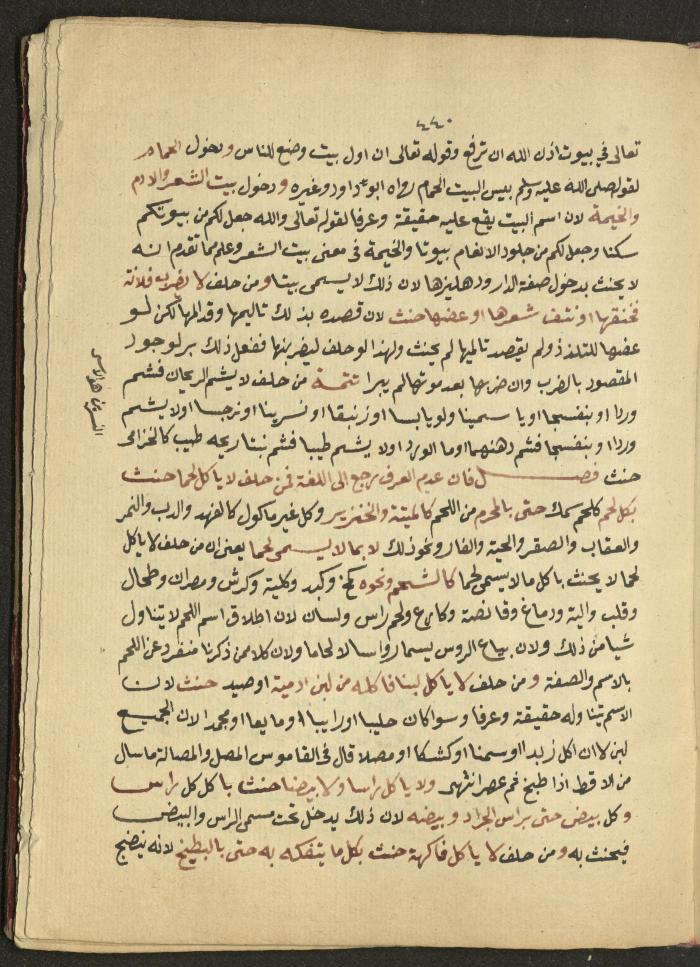 ٤٤٠
تعالى في بيوت اذن الله ان ترفع وقوله تعالى ان اول بيت وضع للناس ودخول الحمام
لقوله صلى الله عليه وسلم بيس البيت الحمام رواه ابو داود وغيره ودخول بيت الشعر والادم
والخيمة لان اسم البيت يقع عليه حقيقة وعرفا لقوله تعالى والله جعل لكم من بيوتكم
سكنا وجعل لكم من جلود الانعام بيوتا والخيمة في معنى بيت الشعر وعلم مما تقدم انه
لا يحنث بدخول صفة الدار ودهليزها لان ذلك لا يسمى بيتا ومن حلف لا يضرب فلانة
فخنقها او نتف شعرها او عضها حنث لان قصده بذلك تاليمها وقد المها لكن لو
عضها للتلذذ ولم يقصد تاليمها لم يحنث ولهذا لو حلف ليضربنها ففعل ذلك بر لوجود
المقصود بالضرب وان ضربها بعد موتها لم يبرا تتمة من حلف لا يشم الريحان فشم
وردا او بنفسجا او ياسمينا ولو يابسا او زنبقا او نسرينا او نرجسا او لا يشم
وردا او بنفسجا فشم دهنهما او ما الورد او لا يشم طيبا فشم نبتا ريحه طيب كالخزامى
حنث فصل فان عدم العرف رجع الى اللغة فمن حلف لا ياكل لحما حنث
بكل لحم كلحم سمك حتى بالمحرم من اللحم كالميتة والخنزير وكل غير ماكول كالفهد والدب والنمر
والعقاب والصقر والحية والفار ونحو ذلك لا بما لا يسمى لحما يعني ان من حلف لا ياكل
لحما لا يحنث باكل ما لا يسمى لحما كالشحم ونحوه كمخ وكبد وكلية وكرش ومصران وطحال
وقلب والية ودماغ وقانصة وكارع ولحم راس ولسان لان اطلاق اسم اللحم لا يتناول
شيا من ذلك ولان بياع الروس يسما رواسا لا لحاما ولان كلا ممن ذكرنا منفرد عن اللحم
بالاسم والصفة ومن حلف لا ياكل لبنا فاكله من لبن ادمية او صيد حنث لان
الاسم يتناوله حقيقة وعرفا وسوا كان حليبا او رايبا او مايعا او مجمدا لان الجميع
لبن لا ان اكل زبدا او سمنا او كشكا او مصلا قال في القاموس المصل والمصالة ما سال
من الاقط اذا طبخ ثم عصر انتهى ولا ياكل راسا ولا بيضا حنث باكل كل راس
وكل بيض حتى براس الجراد وبيضه لان ذلك يدخل تحت مسمى الراس والبيض
فيحنث به ومن حلف لا ياكل فاكهة حنث بكل ما يتفكه به حتى بالبطيخ لانه ينضج